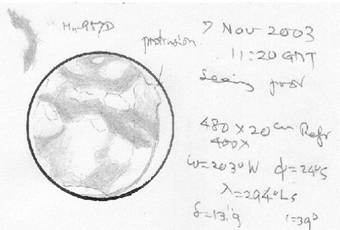 protrusion
7 Nov 2003
11:20 GMT
Seeing poor
480 X 20cm Refr
400X
ω=203°W φ=24°S
λ=294°Ls
δ=13".9 ι=39°